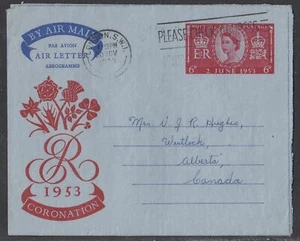 BY AIR MAIL
PAR AVION
AIR LETTER
AEROGRAMME
PLEASE
E R
6D 2 JUNE 1953 6D
Mrs. V J R Hughes,
Westlock,
Alberta,
Canada
ER
1953
CORONATION